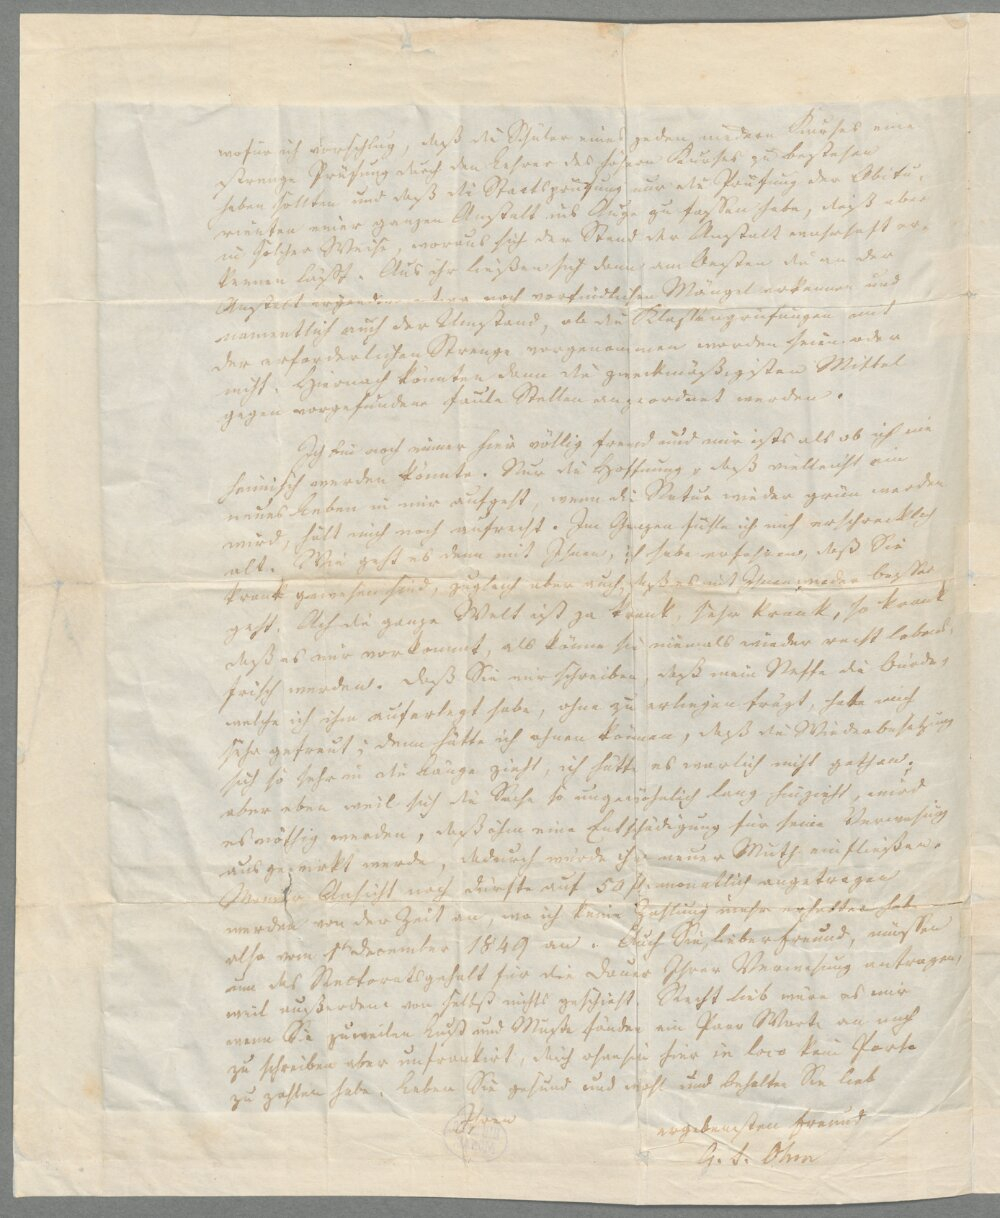 wofür ich vorschlug, daß die Schüler eines jeden niedern Kurses eine
strenge Prüfung durch den Lehrer des höhern Kurses zu bestehen
haben sollten und daß die Staatsprüfung nur die Prüfung der Abitu-
rienten einer ganzen Anstalt ins Auge zu fassen habe, daß aber
in solcher Weise, woraus sich der Stand der Anstalt wahrhaft er-
kennen läßt. Aus ihr ließen sich dann am Besten die an der
Anstalt noch vorfindlichen Mängel erkennen und
namentlich auch der Umstand, ob die Klassenprüfungen mit
der erforderlichen Strenge vorgenommen worden seien oder
nicht. Hiernach könnten dann die zweckmäßigsten Mittel
gegen vorgefundene faule Stellen angeordnet werden.
Ich bin noch immer hier völlig fremd und mir ists als ob ich nie
heimisch werden könnte. Nur die Hoffnung, daß vielleicht ein
neues Leben in mir aufgeht, wenn die Natur wieder grün werden
wird, hält mich noch aufrecht. Im Ganzen fühle ich mich erschrecklich
alt. Wie geht es denn mit Ihnen, ich habe erfahren, daß Sie
krank gewesen sind, zugleich aber auch, daß es mit Ihnen wieder besser
geht. Ach die ganze Welt ist ja krank, sehr krank, so krank
daß es mir vorkommt, als könne sie niemals wieder recht lebens-
frisch werden. Daß Sie mir schreiben, daß mein Neffe die Bürde,
welche ich ihm auferlegt habe, ohne zu erliegen trägt, hat mich
sehr gefreut; denn hätte ich ahnen können, daß die Wiederbesetzung
sich so sehr in die Länge zieht, ich hätte es warlich nicht gethan.
aber eben weil sich die Sache so ungewöhnlich lang hinzieht, wird
es nöthig werden, daß ihm eine Entschädigung für seine Verwesung
ausgewirkt werde, dadurch würde ihm neuer Muth einfließen.
Meiner Ansicht nach dürfte auf 50 fl. monatlich angetragen
werden von der Zeit an, wo ich keine Zahlung mehr erhalten habe
also vom 1t December 1849 an. Auch Sie, lieber Freund, müssen
um das Rectoratsgehalt für die Dauer Ihrer Verwesung antragen,
weil außerdem von selbst nichts geschieht. Recht lieb wäre es mir
wenn Sie zuweilen Lust und Muße fänden ein Paar Worte an mich
zu schreiben aber unfrankirt, da ich ohnehin hier in loco kein Porto
zu zahlen habe. Leben Sie gesund und wohl und behalten Sie lieb
Ihren
ergebensten Freund
G. S. Ohm